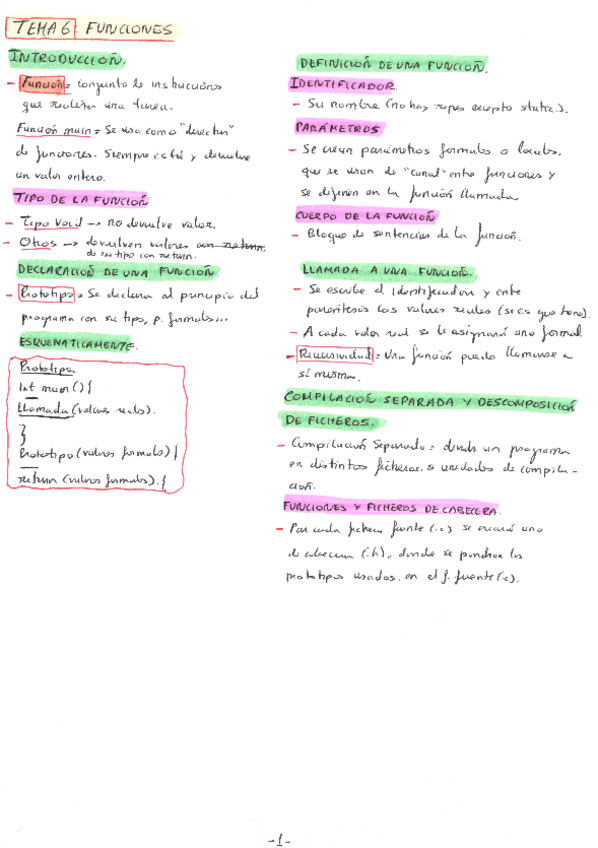 TEMA 6: FUNCIONES
INTRODUCCIÓN.
- Función = conjunto de instrucciones
que realizan una tarea.
Función main = Se usa como "director"
de funciones. Siempre está y devuelve
un valor entero.
TIPO DE LA FUNCIÓN
- Tipo Void → no devuelve valor.
- Otros → devuelven valores con return.
de su tipo con return.
DECLARACIÓN DE UNA FUNCIÓN.
- Prototipo = Se declara al principio del
programa con su tipo, p. formales...
ESQUEMÁTICAMENTE.
Prototipo
Int main () {
Llamada (valores reales).
}
Prototipo (valores formales) {
return (valores formales). {
DEFINICIÓN DE UNA FUNCIÓN.
IDENTIFICADOR.
- Su nombre (no hay repes excepto static.).
PARÁMETROS
- Se crean parámetros formales o locales,
que se usan de "canal" entre funciones y
se definen en la función llamada.
CUERPO DE LA FUNCIÓN
- Bloque de sentencias de la función.
LLAMADA A UNA FUNCIÓN.
- Se escribe el identificador y entre
paréntesis los valores reales (si es que tiene).
- A cada valor real se le asignará uno formal
- Recursividad = Una función puede llamarse a
sí misma.
COMPILACIÓN SEPARADA Y DESCOMPOSICIÓN
DE FICHEROS.
- Compilación Separada = divide un programa
en distintos ficheros o unidades de compila-
ción.
FUNCIONES Y FICHEROS DE CABECERA.
- Por cada fichero fuente (.c) se creará uno
de cabecera (.h), donde se pondrán los
prototipos usados en el f. fuente (.c).
-1-